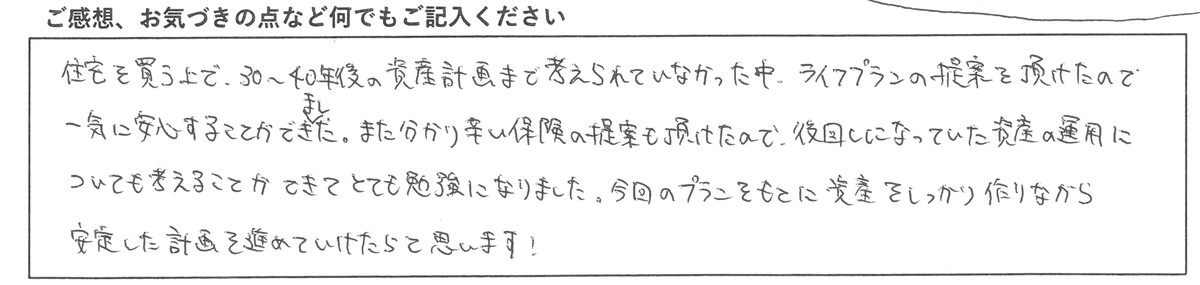 ご感想、お気づきの点など何でもご記入ください
住宅を買う上で、30～40年後の資産計画まで考えられていなかった中、ライフプランの提案を頂けたので
一気に安心することができました。また分かり辛い保険の提案も頂けたので、後回しになっていた資産の運用に
ついても考えることができてとても勉強になりました。今回のプランをもとに資産をしっかり作りながら
安定した計画を進めていけたらと思います!